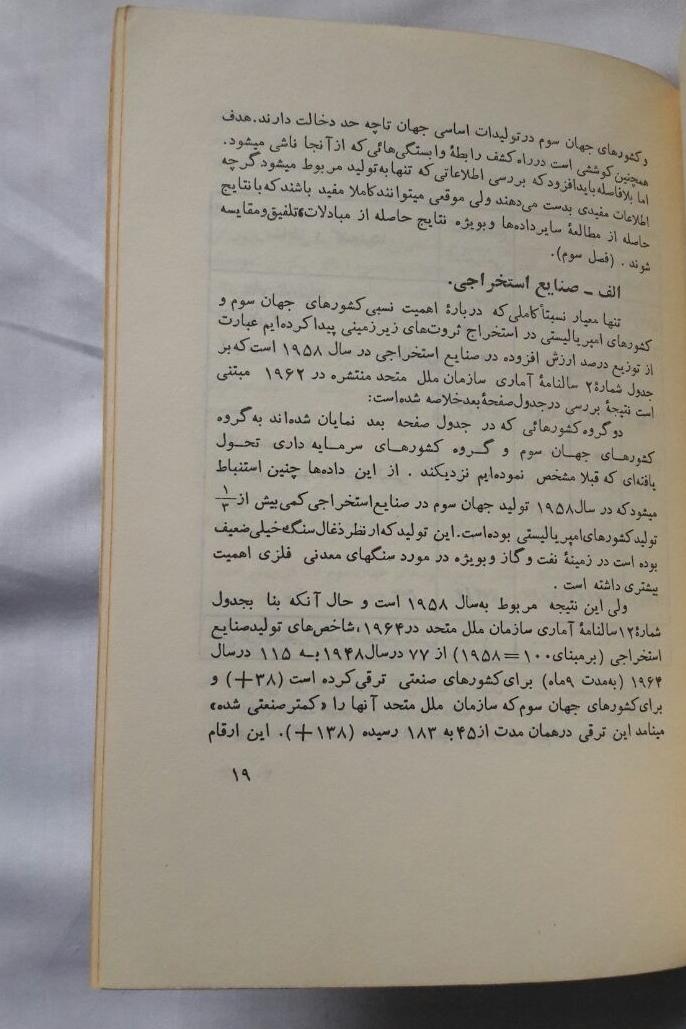 و کشورهای جهان سوم در تولیدات اساسی جهان تاچه حد دخالت دارند. هدف
همچنین کوششی است در راه کشف رابطهٔ وابستگی‌هائی که از آنجا ناشی میشود.
اما بلافاصله باید افزود که بررسی اطلاعاتی که تنها به تولید مربوط میشود گرچه
اطلاعات مفیدی بدست می‌دهند ولی موقعی میتوانند کاملا مفید باشند که با نتایج
حاصله از مطالعهٔ سایر داده‌ها و بویژه نتایج حاصله از مبادلات» تلفیق و مقایسه
شوند . (فصل سوم).
الف ــ صنایع استخراجی.
تنها معیار نسبتاً کاملی که دربارهٔ اهمیت نسبی کشورهای جهان سوم و
کشورهای امپریالیستی در استخراج ثروت‌های زیرزمینی پیدا کرده‌ایم عبارت
از توزیع درصد ارزش افزوده در صنایع استخراجی در سال ۱۹۵۸ است که بر
جدول شمارهٔ ۲ سالنامهٔ آماری سازمان ملل متحد منتشره در ۱۹۶۲ مبتنی
است نتیجهٔ بررسی در جدول صفحهٔ بعد خلاصه شده‌است:
دو گروه کشورهائی که در جدول صفحه بعد نمایان شده‌اند به گروه
کشورهـای جهـان سوم و گـروه کشورهـای سرمـایه داری تحـول
یافته‌ای که قبلا مشخص نموده‌ایم نزدیکند . از این داده‌ها چنین استنباط
میشود که در سال ۱۹۵۸ تولید جهان سوم در صنایع استخراجی کمی بیش از ۱/۳
تولید کشورهای امپریالیستی بوده‌است. این تولید که از نظر ذغال سنگ خیلی ضعیف
بوده است در زمینهٔ نفت و گاز و بویژه در مورد سنگهای معدنی فلزی اهمیت
بیشتری داشته است .
ولی این نتیجه مربوط به‌سال ۱۹۵۸ است و حال آنکه بنا بجدول
شمارهٔ ۱۲ سالنامهٔ آماری سازمان ملل متحد در ۱۹۶۴، شاخص‌های تولید صنایع
استخراجی (بر مبنای ۱۰۰ = ۱۹۵۸) از ۷۷ در سال ۱۹۴۸ بـه ۱۱۵ در سال
۱۹۶۴ (به مدت ۹ ماه) برای کشورهای صنعتی ترقی کرده است (۳۸+) و
برای کشورهای جهان سوم که سازمان ملل متحد آنها را «کمتر صنعتی شده»
مینامد این ترقی در همان مدت از ۴۵ به ۱۸۳ رسیده (۱۳۸+). این ارقام
۱۹